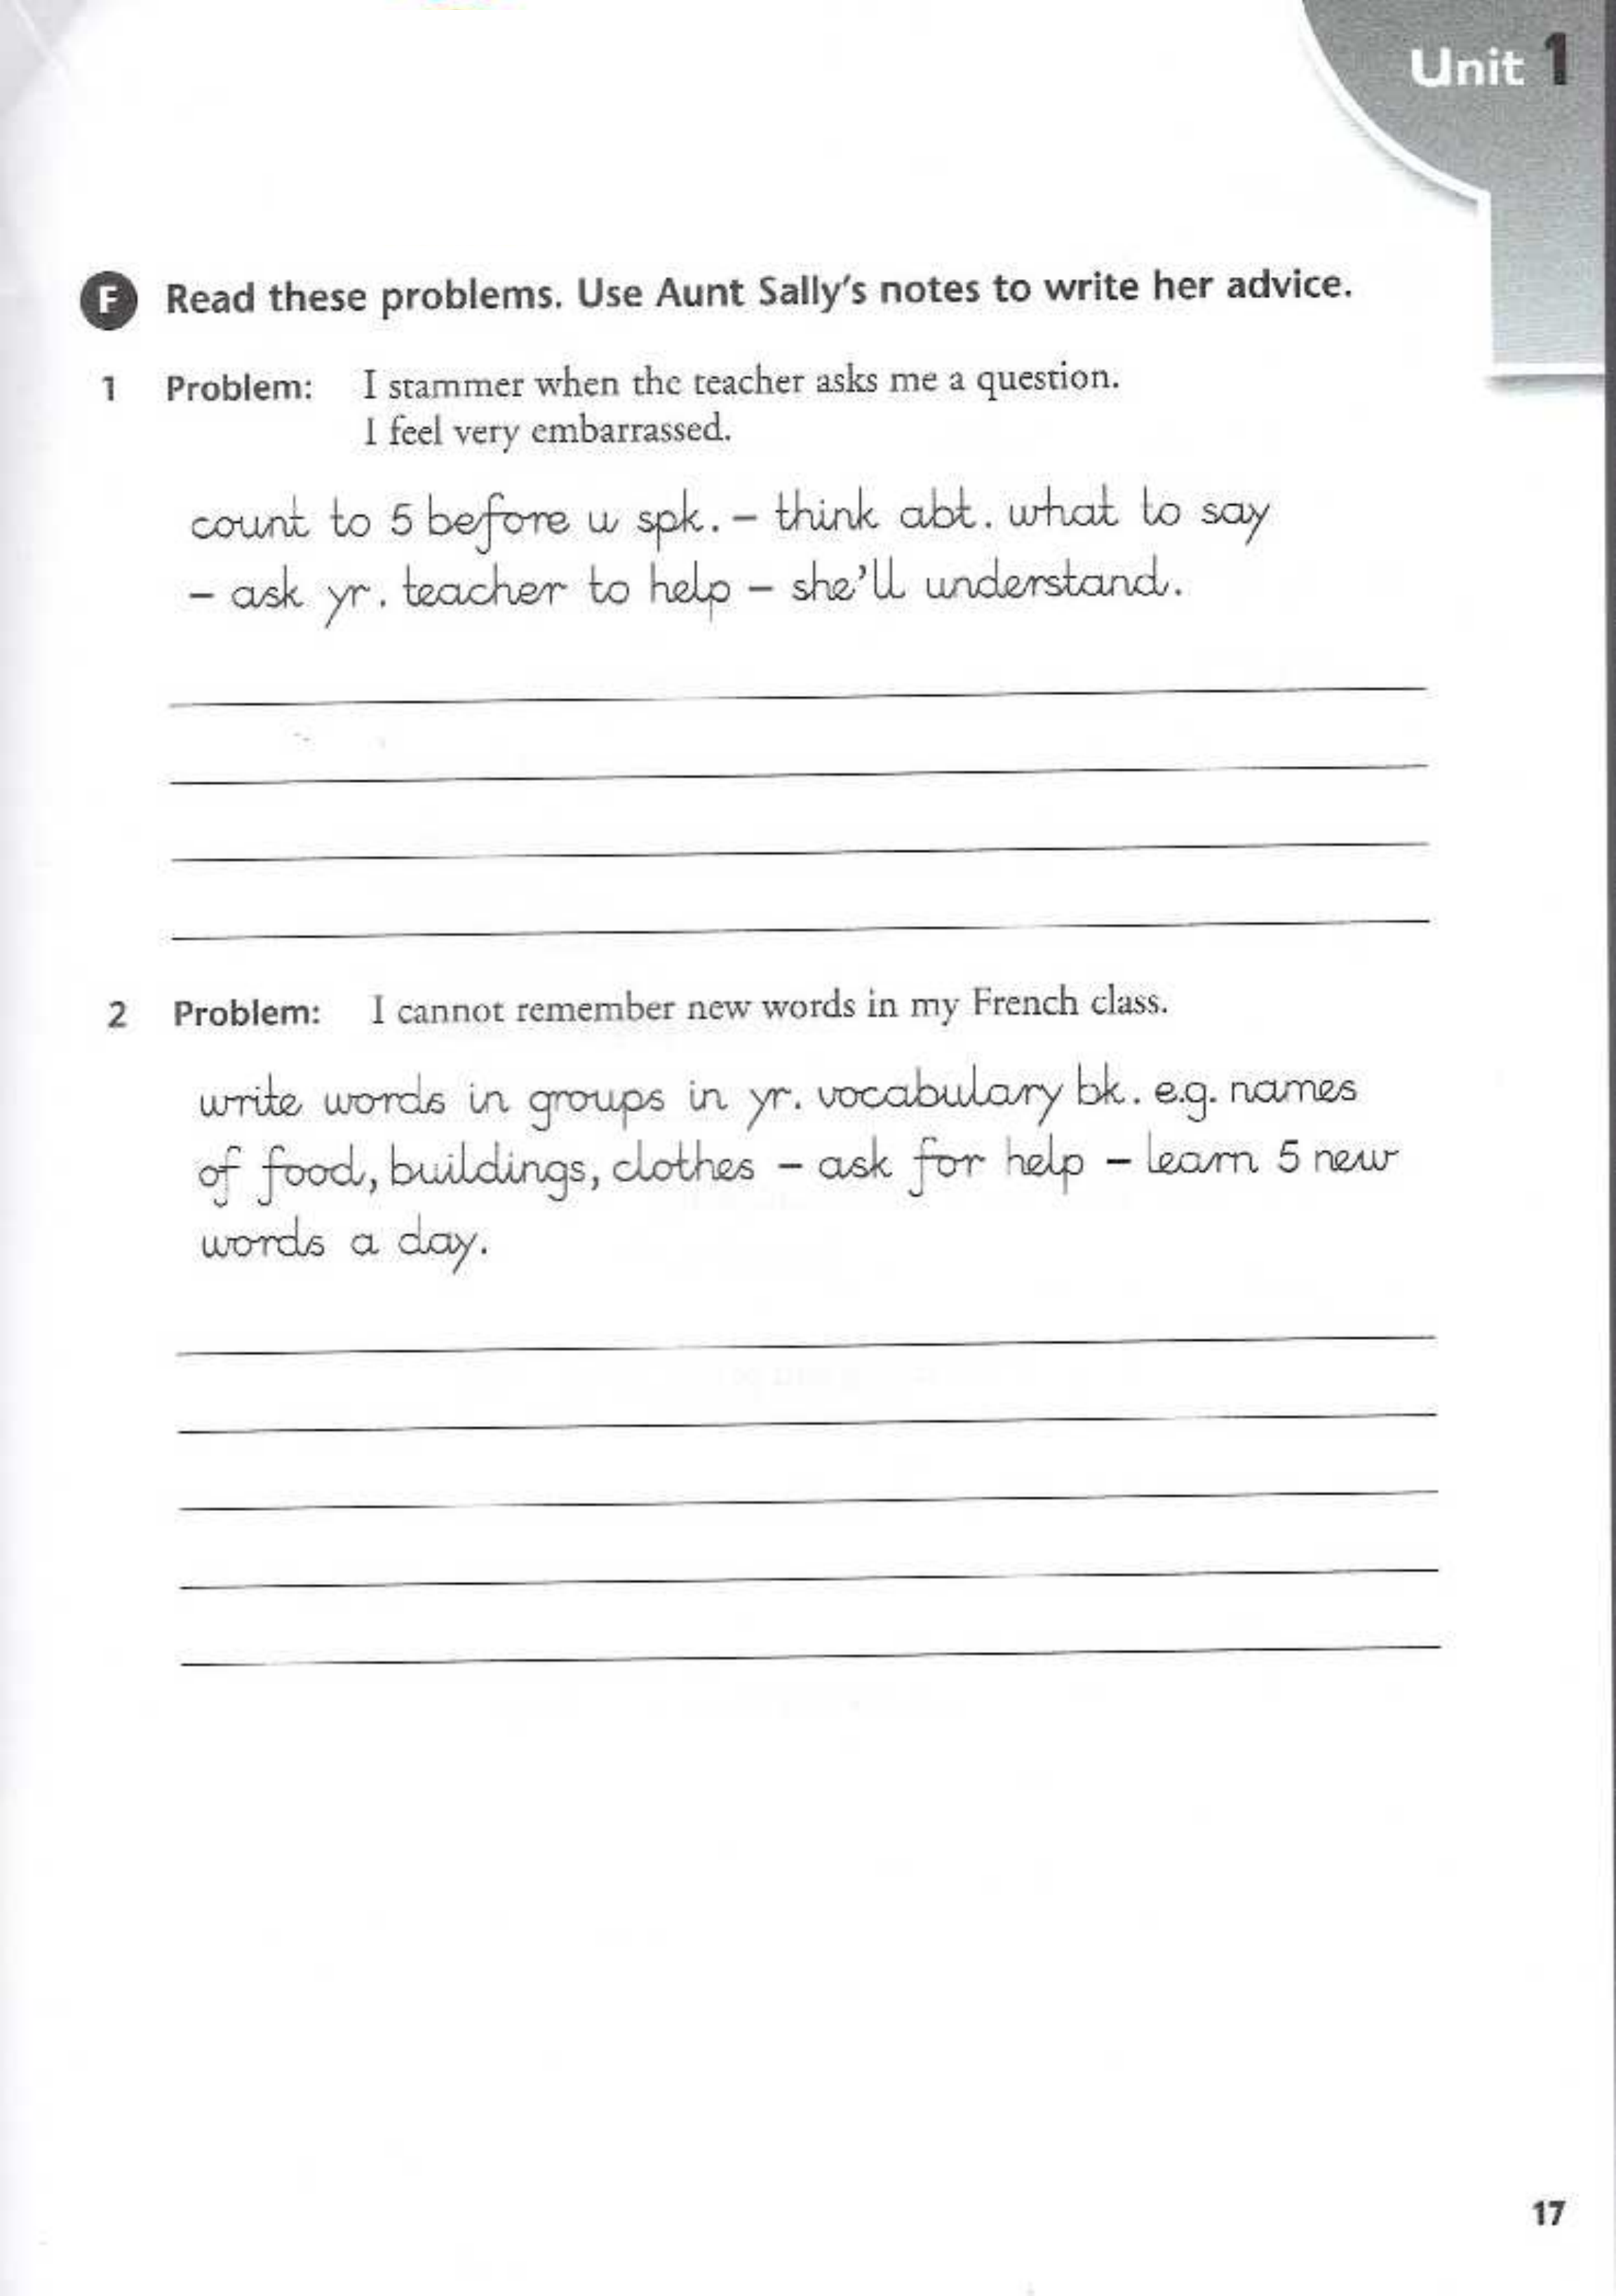 Unit 1
F Read these problems. Use Aunt Sally's notes to write her advice.
1 Problem: I stammer when the teacher asks me a question.
I feel very embarrassed.
count to 5 before u spk. – think abt. what to say
– ask yr. teacher to help – she'll understand.
2 Problem: I cannot remember new words in my French class.
write words in groups in yr. vocabulary bk. e.g. names
of food, buildings, clothes – ask for help – learn 5 new
words a day.
17